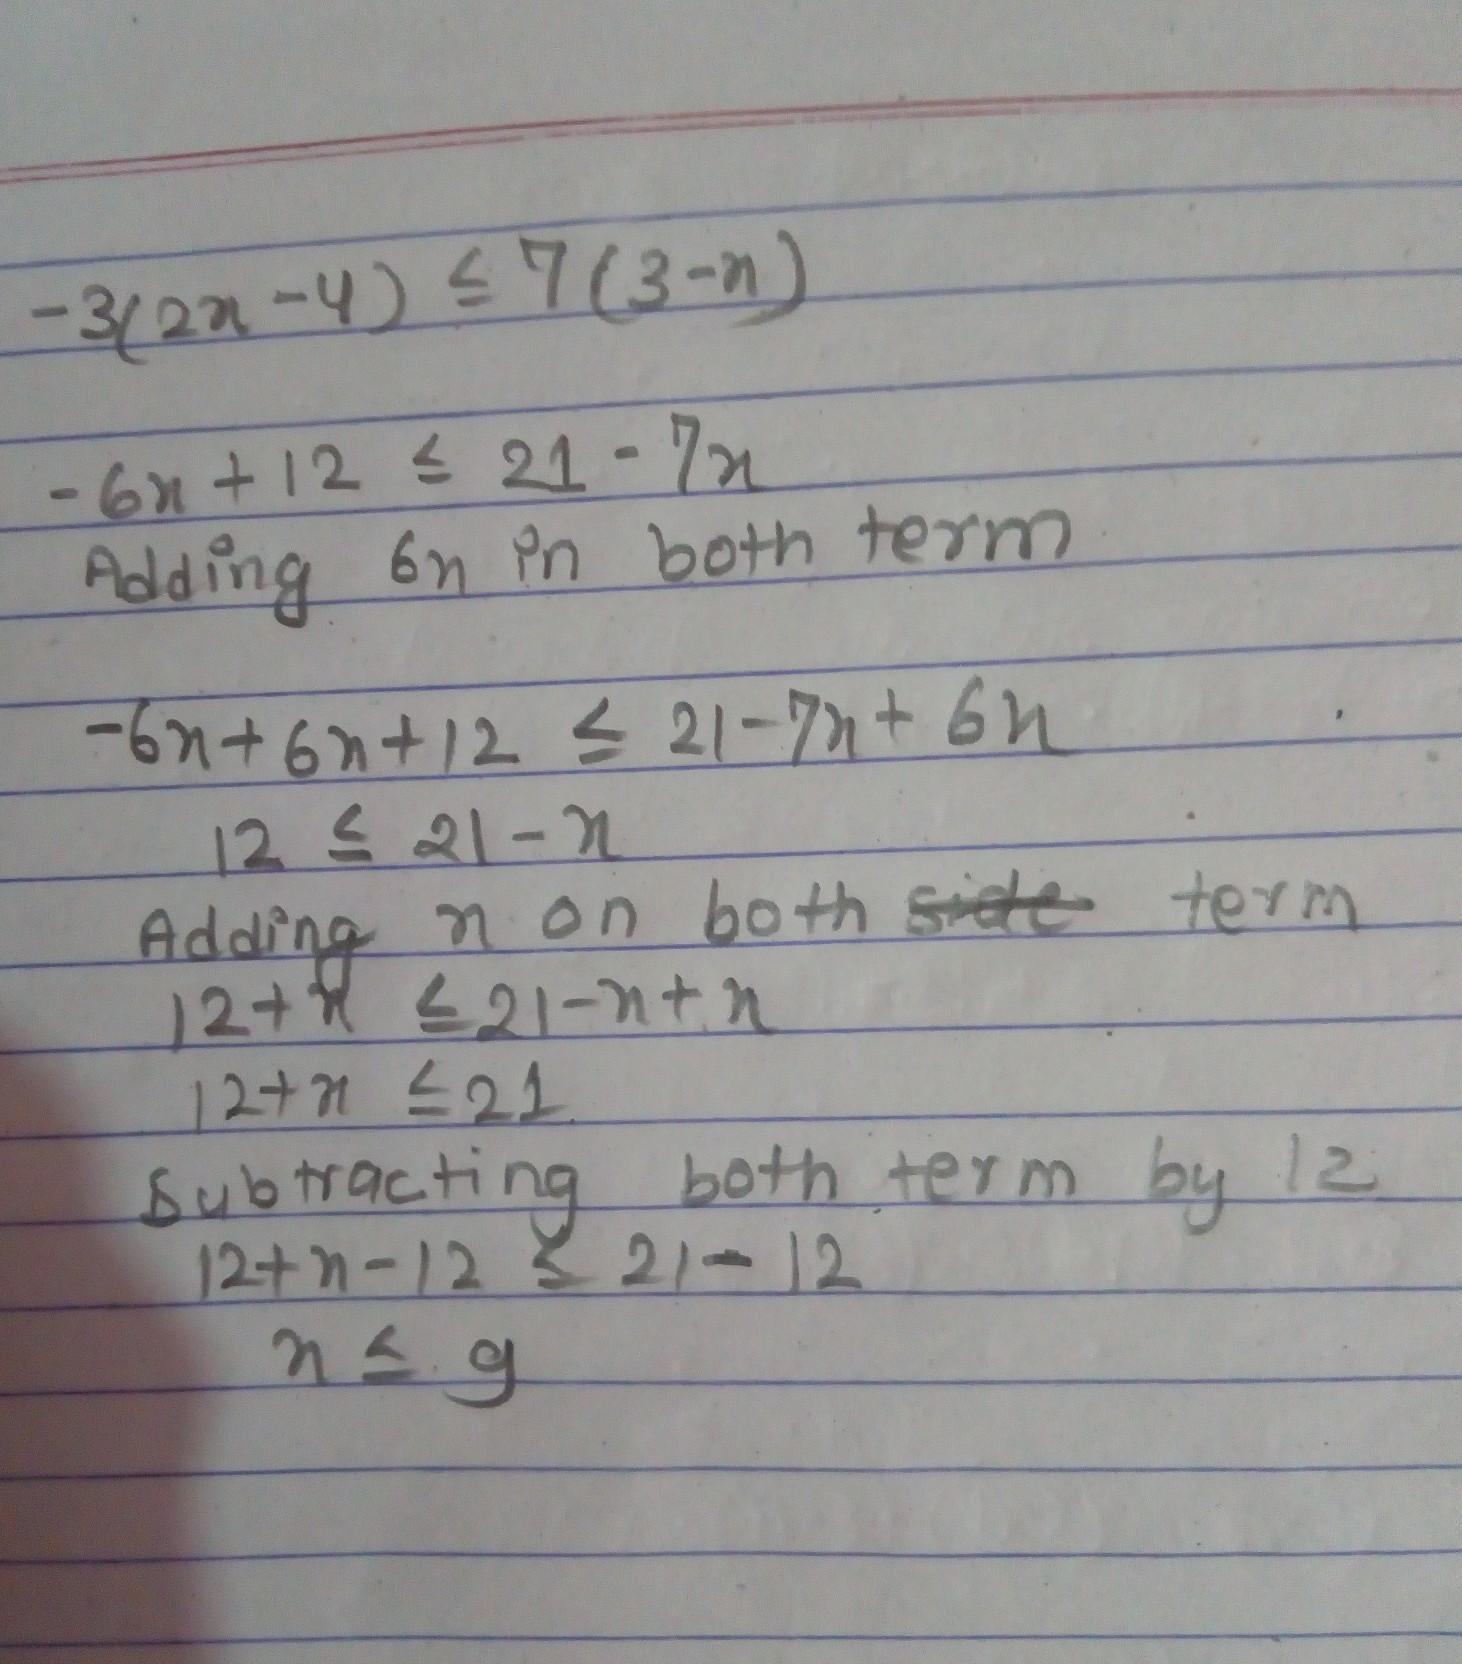 -3(2x-4) ≤ 7(3-x)
-6x+12 ≤ 21-7x
Adding 6x in both term
-6x+6x+12 ≤ 21-7x+6x
12 ≤ 21-x
Adding x on both side term
12+x ≤ 21-x+x
12+x ≤ 21
Subtracting both term by 12
12+x-12 ≤ 21-12
x ≤ 9